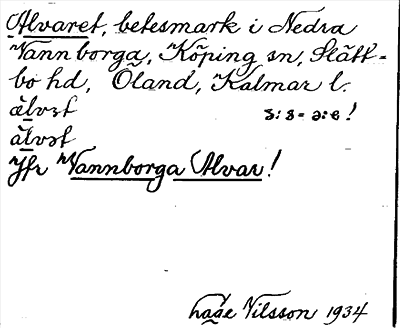 Alvaret, betesmark i Nedra
Vannborga, Köping sn, Slätt-
bo hd, Öland, Kalmar l.
älvɜt
älvət
Jfr Vannborga Alvar!
Nilsson 1934